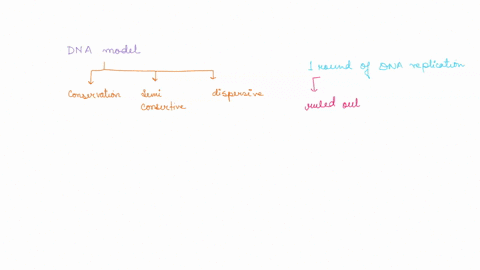 DNA model
1 round of DNA replication
Conservation
Semi
Consertive
dispersive
ruled out